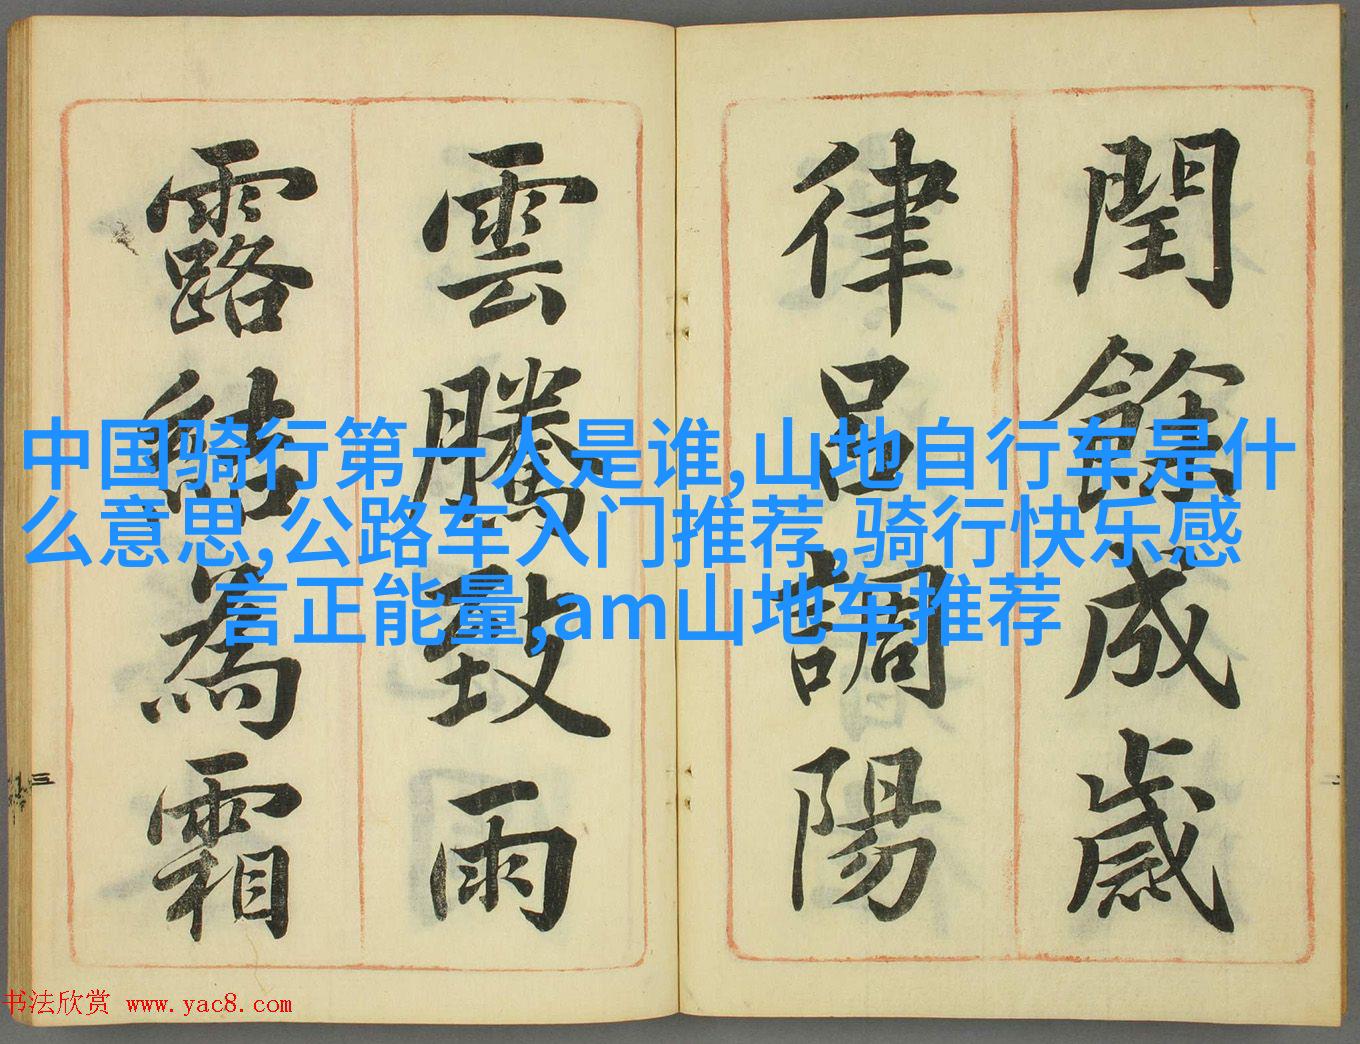 閏餘成歲
律呂調陽
雲騰致雨
露結為霜
中国骑行第一人是谁,山地自行车是什
么意思,公路车入门推荐,骑行快乐感
言正能量,am山地车推荐
三
二
书法欣赏 www.yac8.com